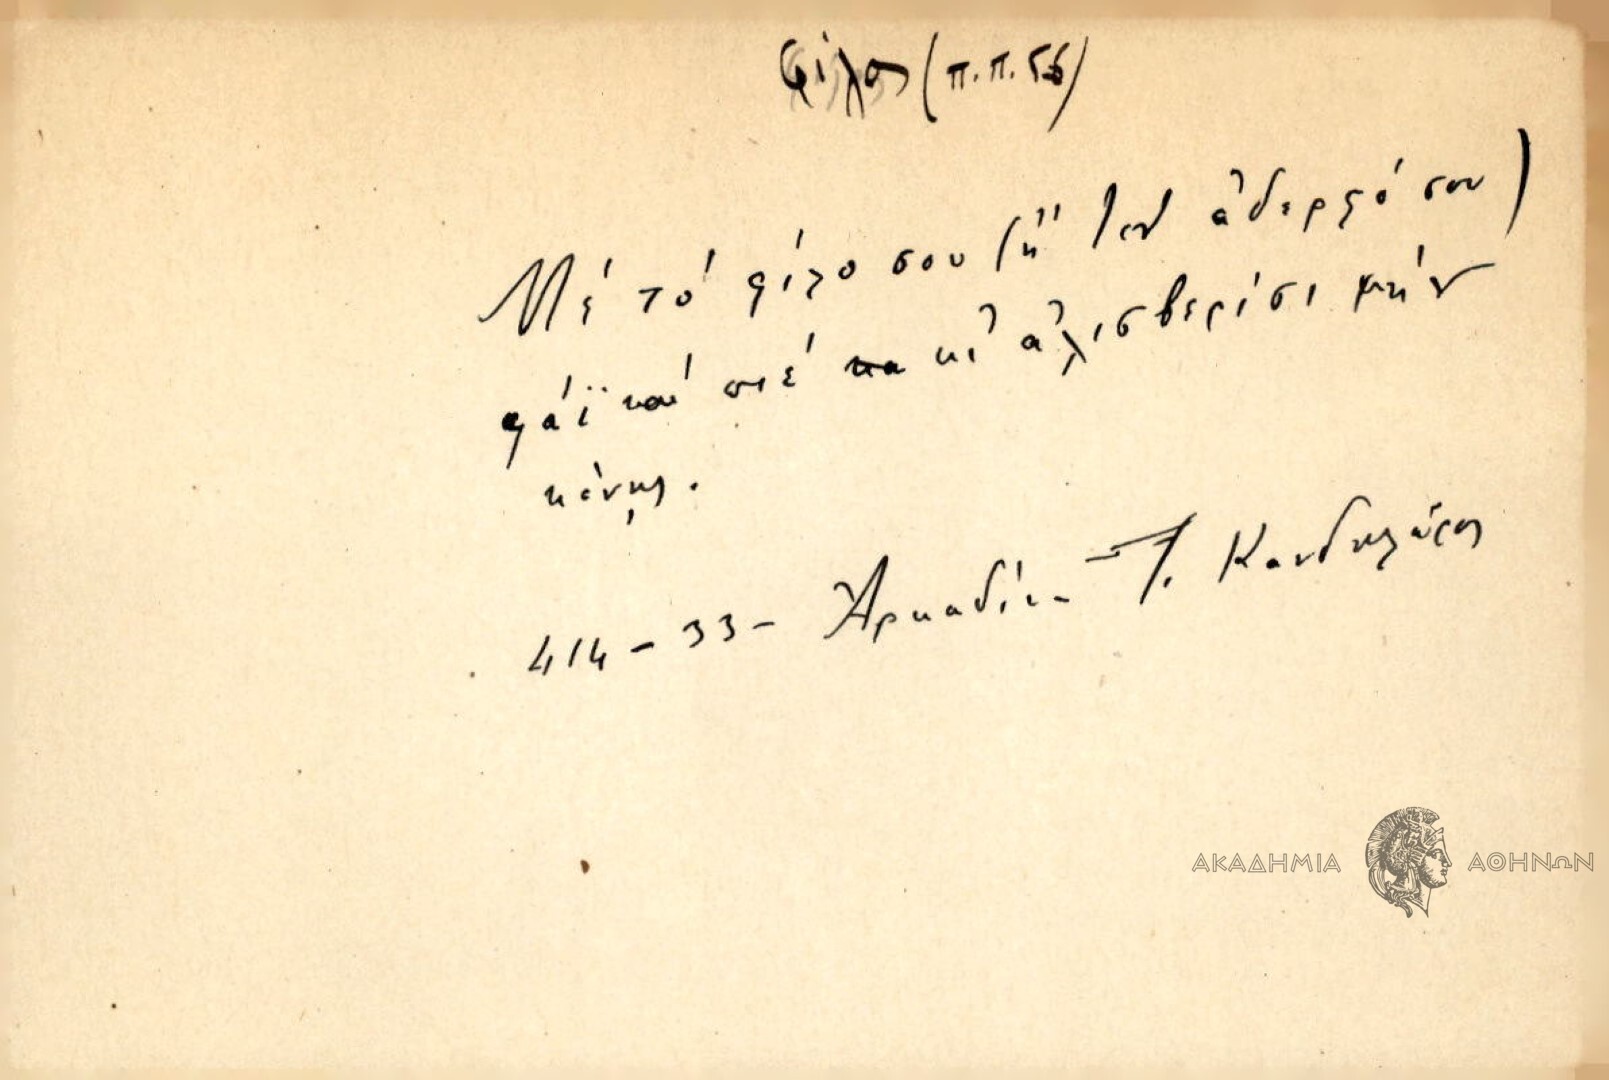 φίλος (π.π. 56)
Μέ τό φίλο σου (ἤ τὸν ἀδερφό σου)
φάϊ καί πιέ κα κι' ἀλισβερίσι μήν
κάνῃς.
414 - 33 - Ἀρκαδία - Τ. Κανδηλῶρος
ΑΚΑΔΗΜΙΑ ΑΘΗΝΩΝ